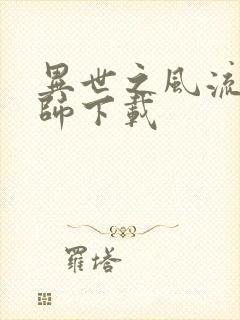 異世之風流
師下載
羅塔